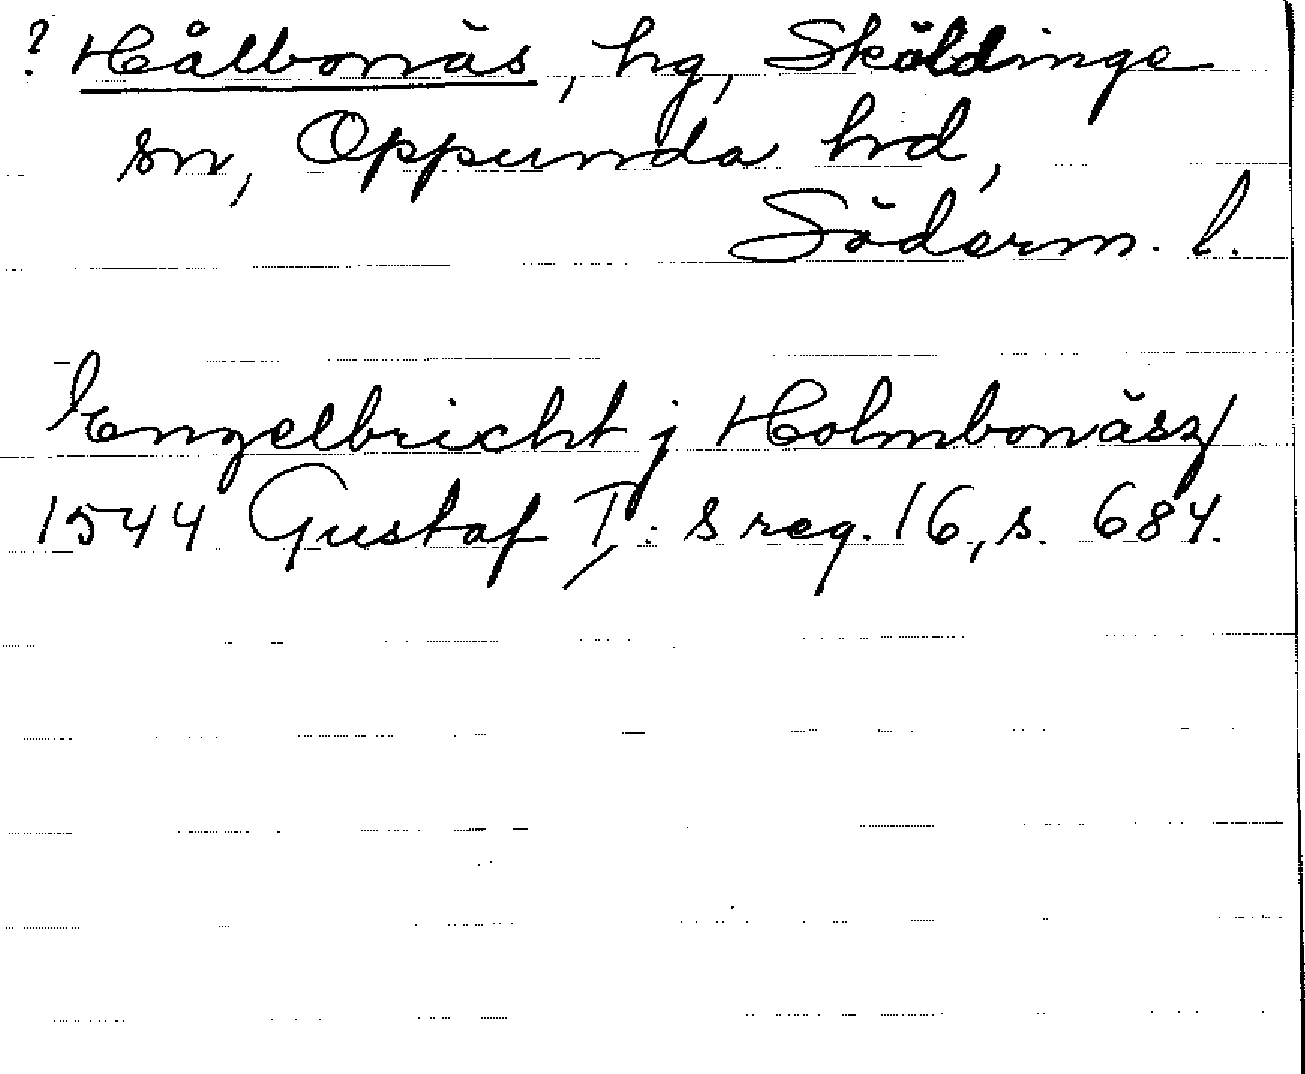 ? Hålbonäs, hg, Sköldinge
sn, Oppunda hd,
Söderm. l.
Engelbricht j Holmbonäsz/
1544 Gustaf I: s reg. 16, s. 684.